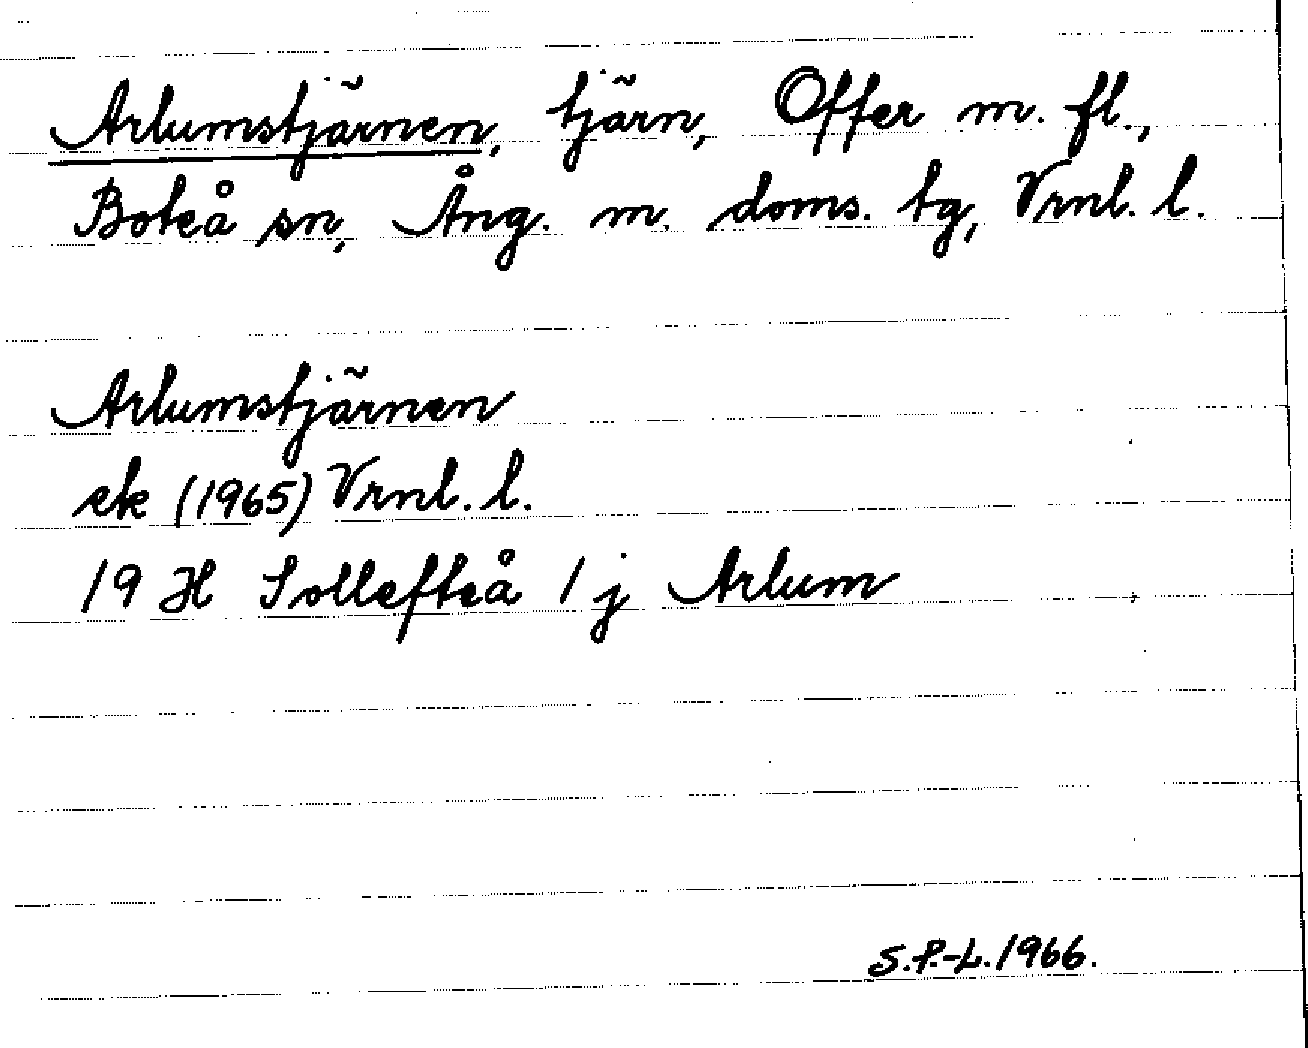 Arlumstjärnen, tjärn, Offer m. fl.,
Boteå sn, Ång. m. doms. tg, Vrnl. l.
Arlumstjärnen
ek (1965) Vrnl. l.
19 H Sollefteå 1 j Arlum
S.P.-L. 1966.